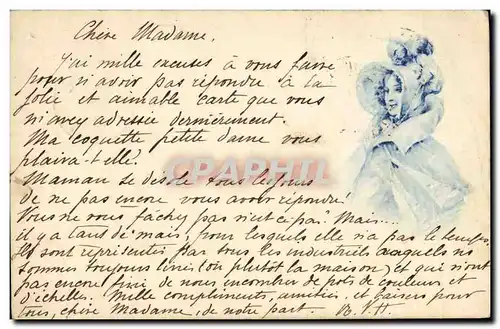 Chère Madame,
J'ai mille excuses à vous faire
pour n'avoir pas répondu à la
jolie et aimable carte que vous
m'avez adressée dernièrement.
Ma coquette petite dame vous
plaira-t-elle?
Maman se désole tous les jours
de ne pas encore vous avoir répondu!
Vous ne vous fachez pas n'est ce pas? Mais....
il y a tant de "mais", pour lesquels elle n'a pas le temps.
Ils sont représentés par tous les industriels auxquels ns
sommes toujours livrés (ou plutôt la maison) et qui n'ont
pas encore fini de nous encombrer de pots de couleurs et
d'échelles. Mille compliments, amitiés, et baisers pour
tous, chère Madame, de notre part.
CARPHIL